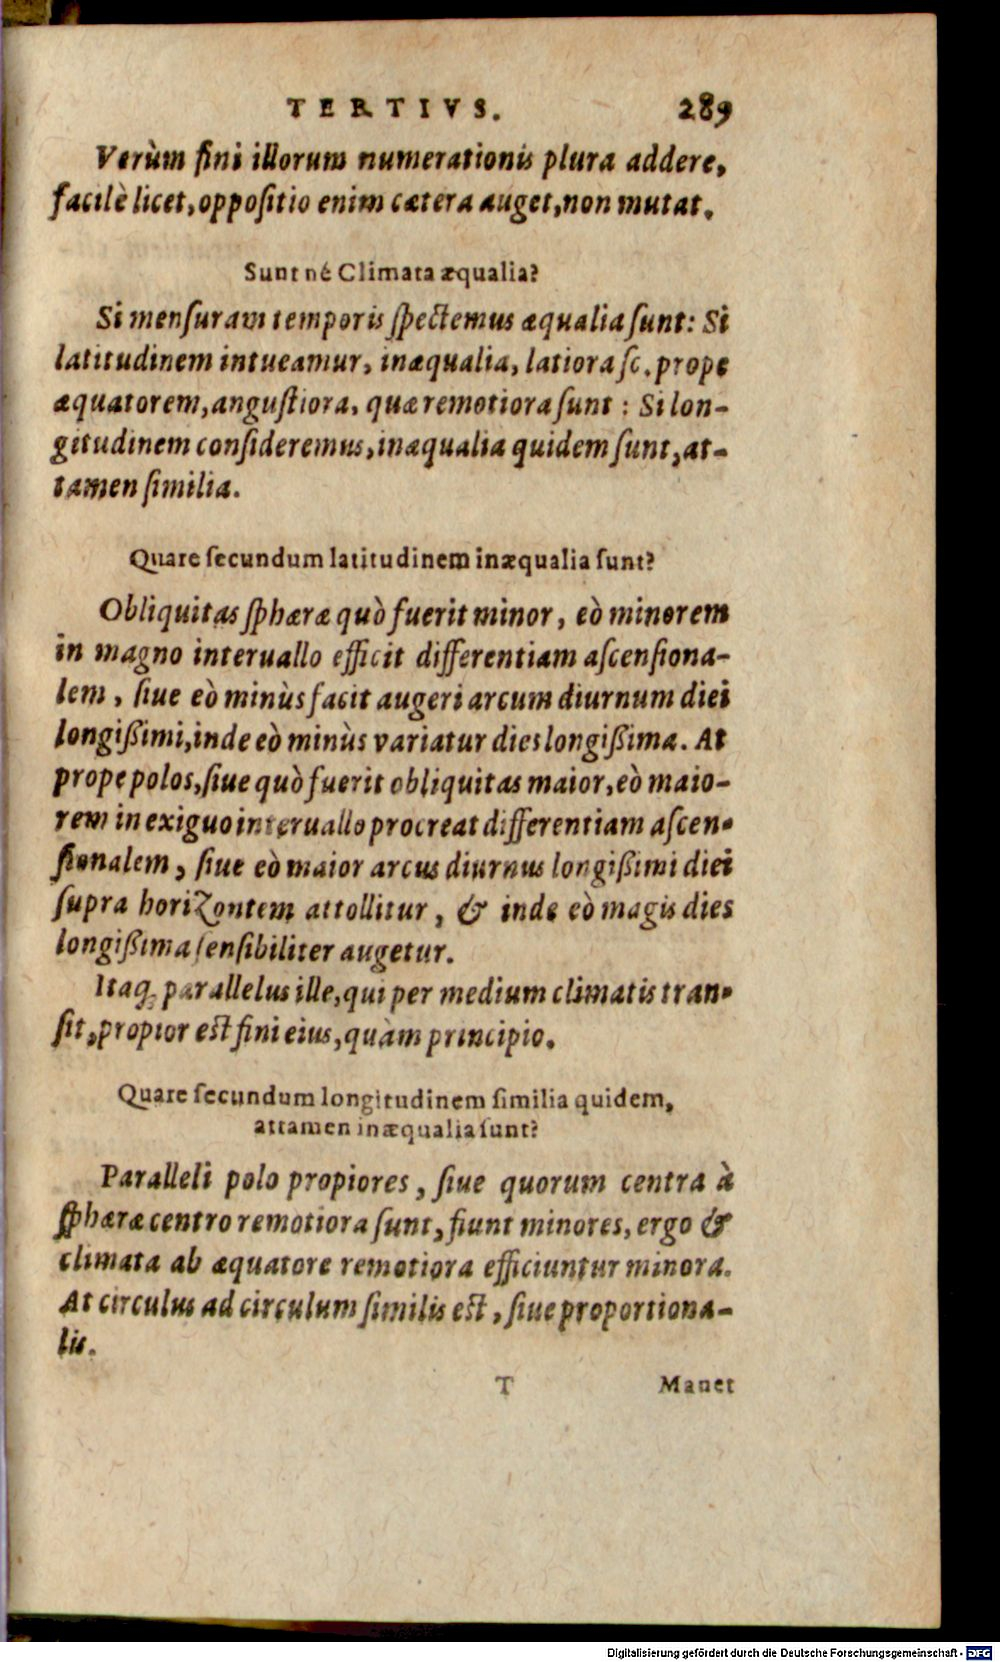 TERTIVS. 289
Verùm fini illorum numerationis plura addere,
facilè licet, oppoſitio enim cætera auget, non mutat.
Sunt né Climata æqualia?
Si menſuram temporis ſpectemus æqualia ſunt: Si
latitudinem intueamur, inæqualia, latiora ſc. prope
æquatorem, anguſtiora, quæ remotiora ſunt : Si lon-
gitudinem conſideremus, inæqualia quidem ſunt, at-
tamen ſimilia.
Quare ſecundum latitudinem inæqualia ſunt?
Obliquitas ſphæræ quò fuerit minor, eò minorem
in magno interuallo efficit differentiam aſcenſiona-
lem, ſiue eò minùs facit augeri arcum diurnum diei
longißimi, inde eò minùs variatur dies longißima. At
prope polos, ſiue quò fuerit obliquitas maior, eò maio-
rem in exiguo interuallo procreat differentiam aſcen-
ſionalem, ſiue eò maior arcus diurnus longißimi diei
ſupra horizontem attollitur, & inde eò magis dies
longißima ſenſibiliter augetur.
Itaq; parallelus ille, qui per medium climatis tran-
ſit, propior eſt fini eius, quàm principio.
Quare ſecundum longitudinem ſimilia quidem,
attamen inæqualia ſunt?
Paralleli polo propiores, ſiue quorum centra à
ſphæræ centro remotiora ſunt, fiunt minores, ergo &
climata ab æquatore remotiora efficiuntur minora.
At circulus ad circulum ſimilis eſt, ſiue proportiona-
lis.
T Manet
Digitalisierung gefördert durch die Deutsche Forschungsgemeinschaft - DFG